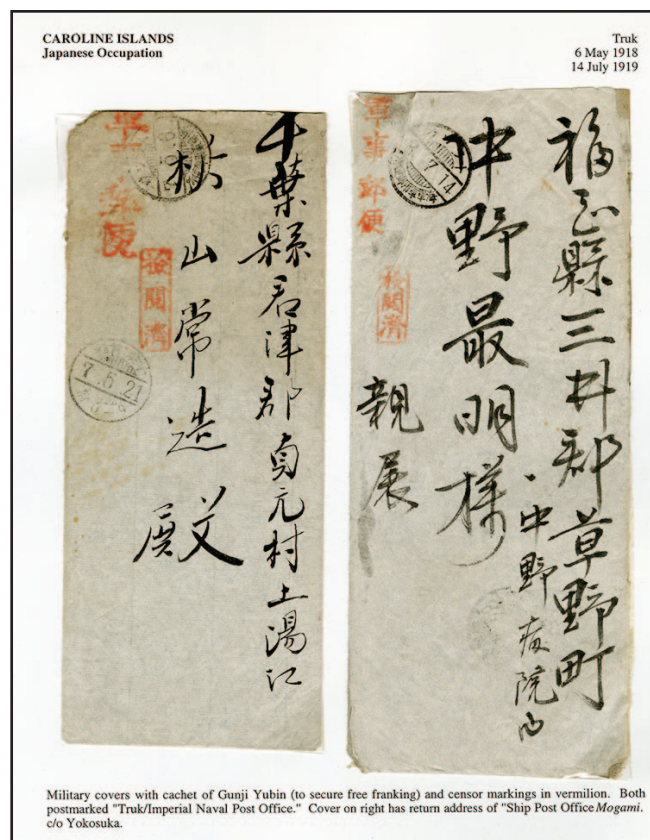 CAROLINE ISLANDS
Japanese Occupation
Truk
6 May 1918
14 July 1919
千葉縣君津郡貞元村上湯江
山常造殿
檢閲濟
7.5.21
福岡縣三井郡草野町
中野病院内
中野最明様
親展
軍事郵便
檢閲濟
7.14
Military covers with cachet of Gunji Yubin (to secure free franking) and censor markings in vermilion. Both
postmarked "Truk/Imperial Naval Post Office." Cover on right has return address of "Ship Post Office Mogami.
c/o Yokosuka.